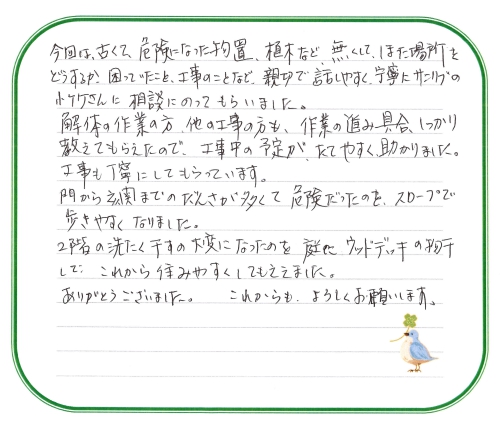 今回は、古くて、危険になった物置、植木など 無くして、はた場所を
どうするか、困っていたこと、工事のことなど、親切で話しやすく、丁寧に サンリブの
小ケケさんに 相談にのってもらいました。
解体の作業の方、他の工事の方も、作業の進み具合、しっかり
教えてもらえたので、工事中の予定が、たてやすく、助かりました。
工事も丁寧にしてもらっています。
門から玄関までのだんさが多くて 危険だったのを、スロープで
歩きやすくなりました。
2階の洗たく干すの大変になったのを 庭に ウッドデッキの物干
しで これから 住みやすくしてもらえました。
ありがとうございました。 これからも、よろしくお願いします。